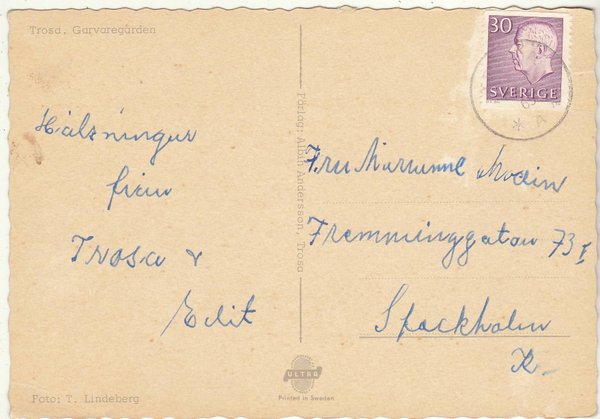 Trosa. Garvaregården
30
SVERIGE
Hälsningar
från
Trosa &
Edit
Förlag: Albin Andersson, Trosa
Fru Marianne Modin
Fleminggatan 73 I
Stockholm
K-
ULTRA
Printed in Sweden
Foto: T. Lindeberg